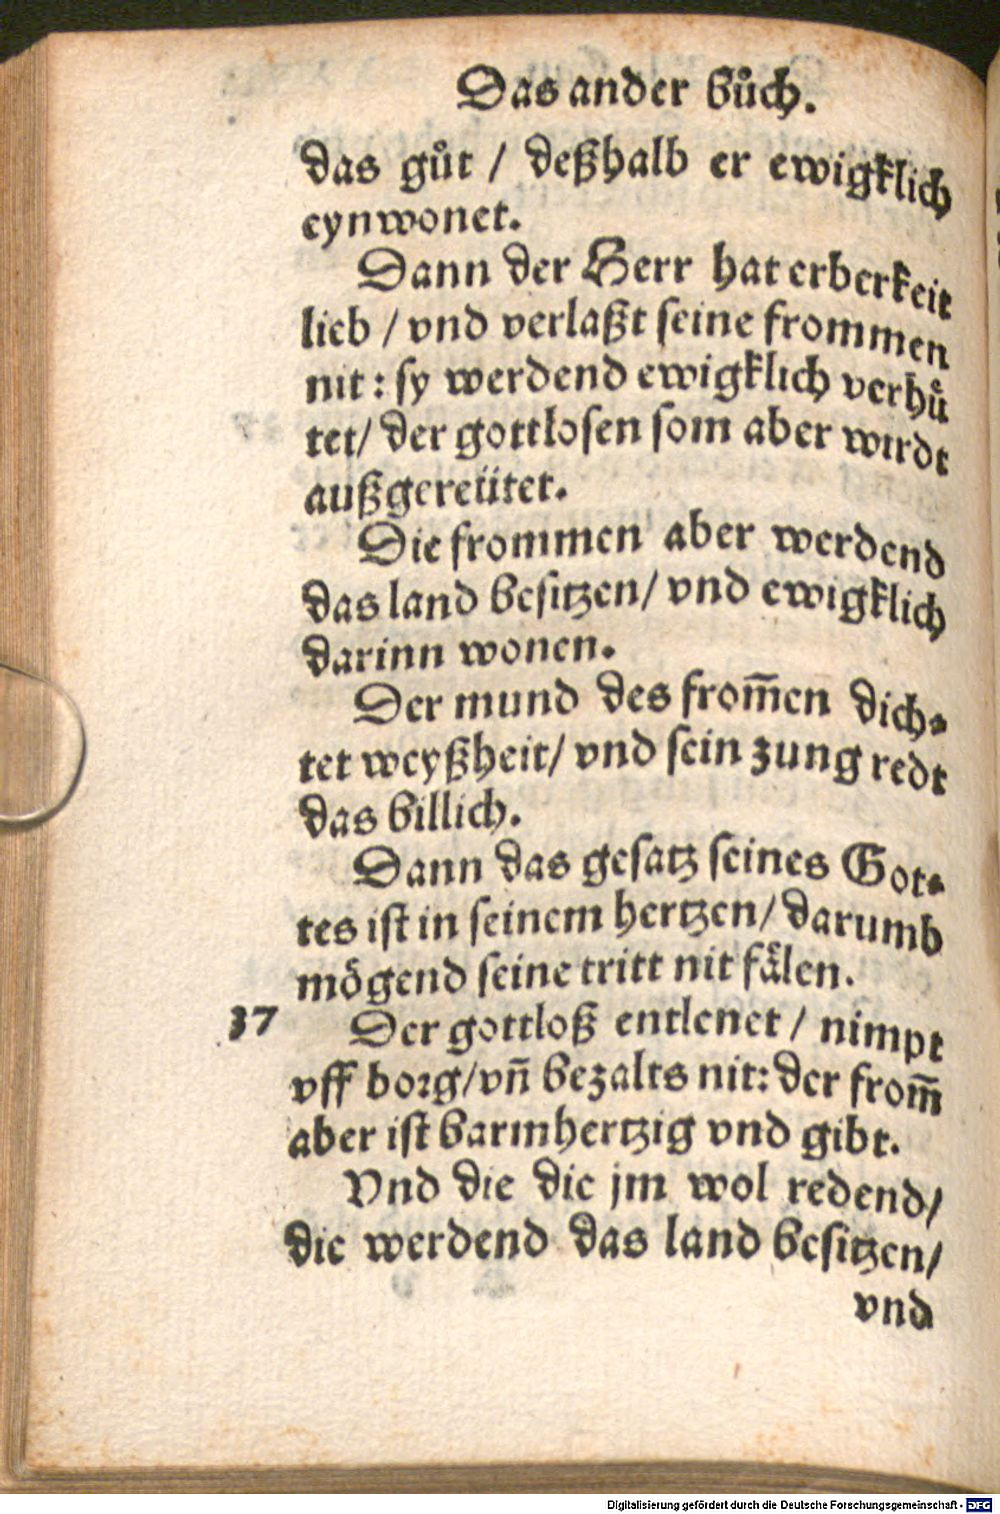 Das ander bůch.
das gůt / deßhalb er ewigklich
eynwonet.
Dann der Herr hat erberkeit
lieb / vnd verlaßt seine frommen
nit : sy werdend ewigklich verhuͤ
tet/ der gottlosen som aber wirdt
außgereütet.
Die frommen aber werdend
das land besitzen/ vnd ewigklich
darinn wonen.
Der mund des from̄en dich⸗
tet weyßheit/ vnd sein zung redt
das billich.
Dann das gesatz seines Got⸗
tes ist in seinem hertzen/ darumb
mögend seine tritt nit faͤlen.
37 Der gottloß entlenet / nimpt
vff borg/vn̄ bezalts nit: der from̄
aber ist barmhertzig vnd gibt.
Vnd die die jm wol redend/
die werdend das land besitzen/
vnd
Digitalisierung gefördert durch die Deutsche Forschungsgemeinschaft - DFG